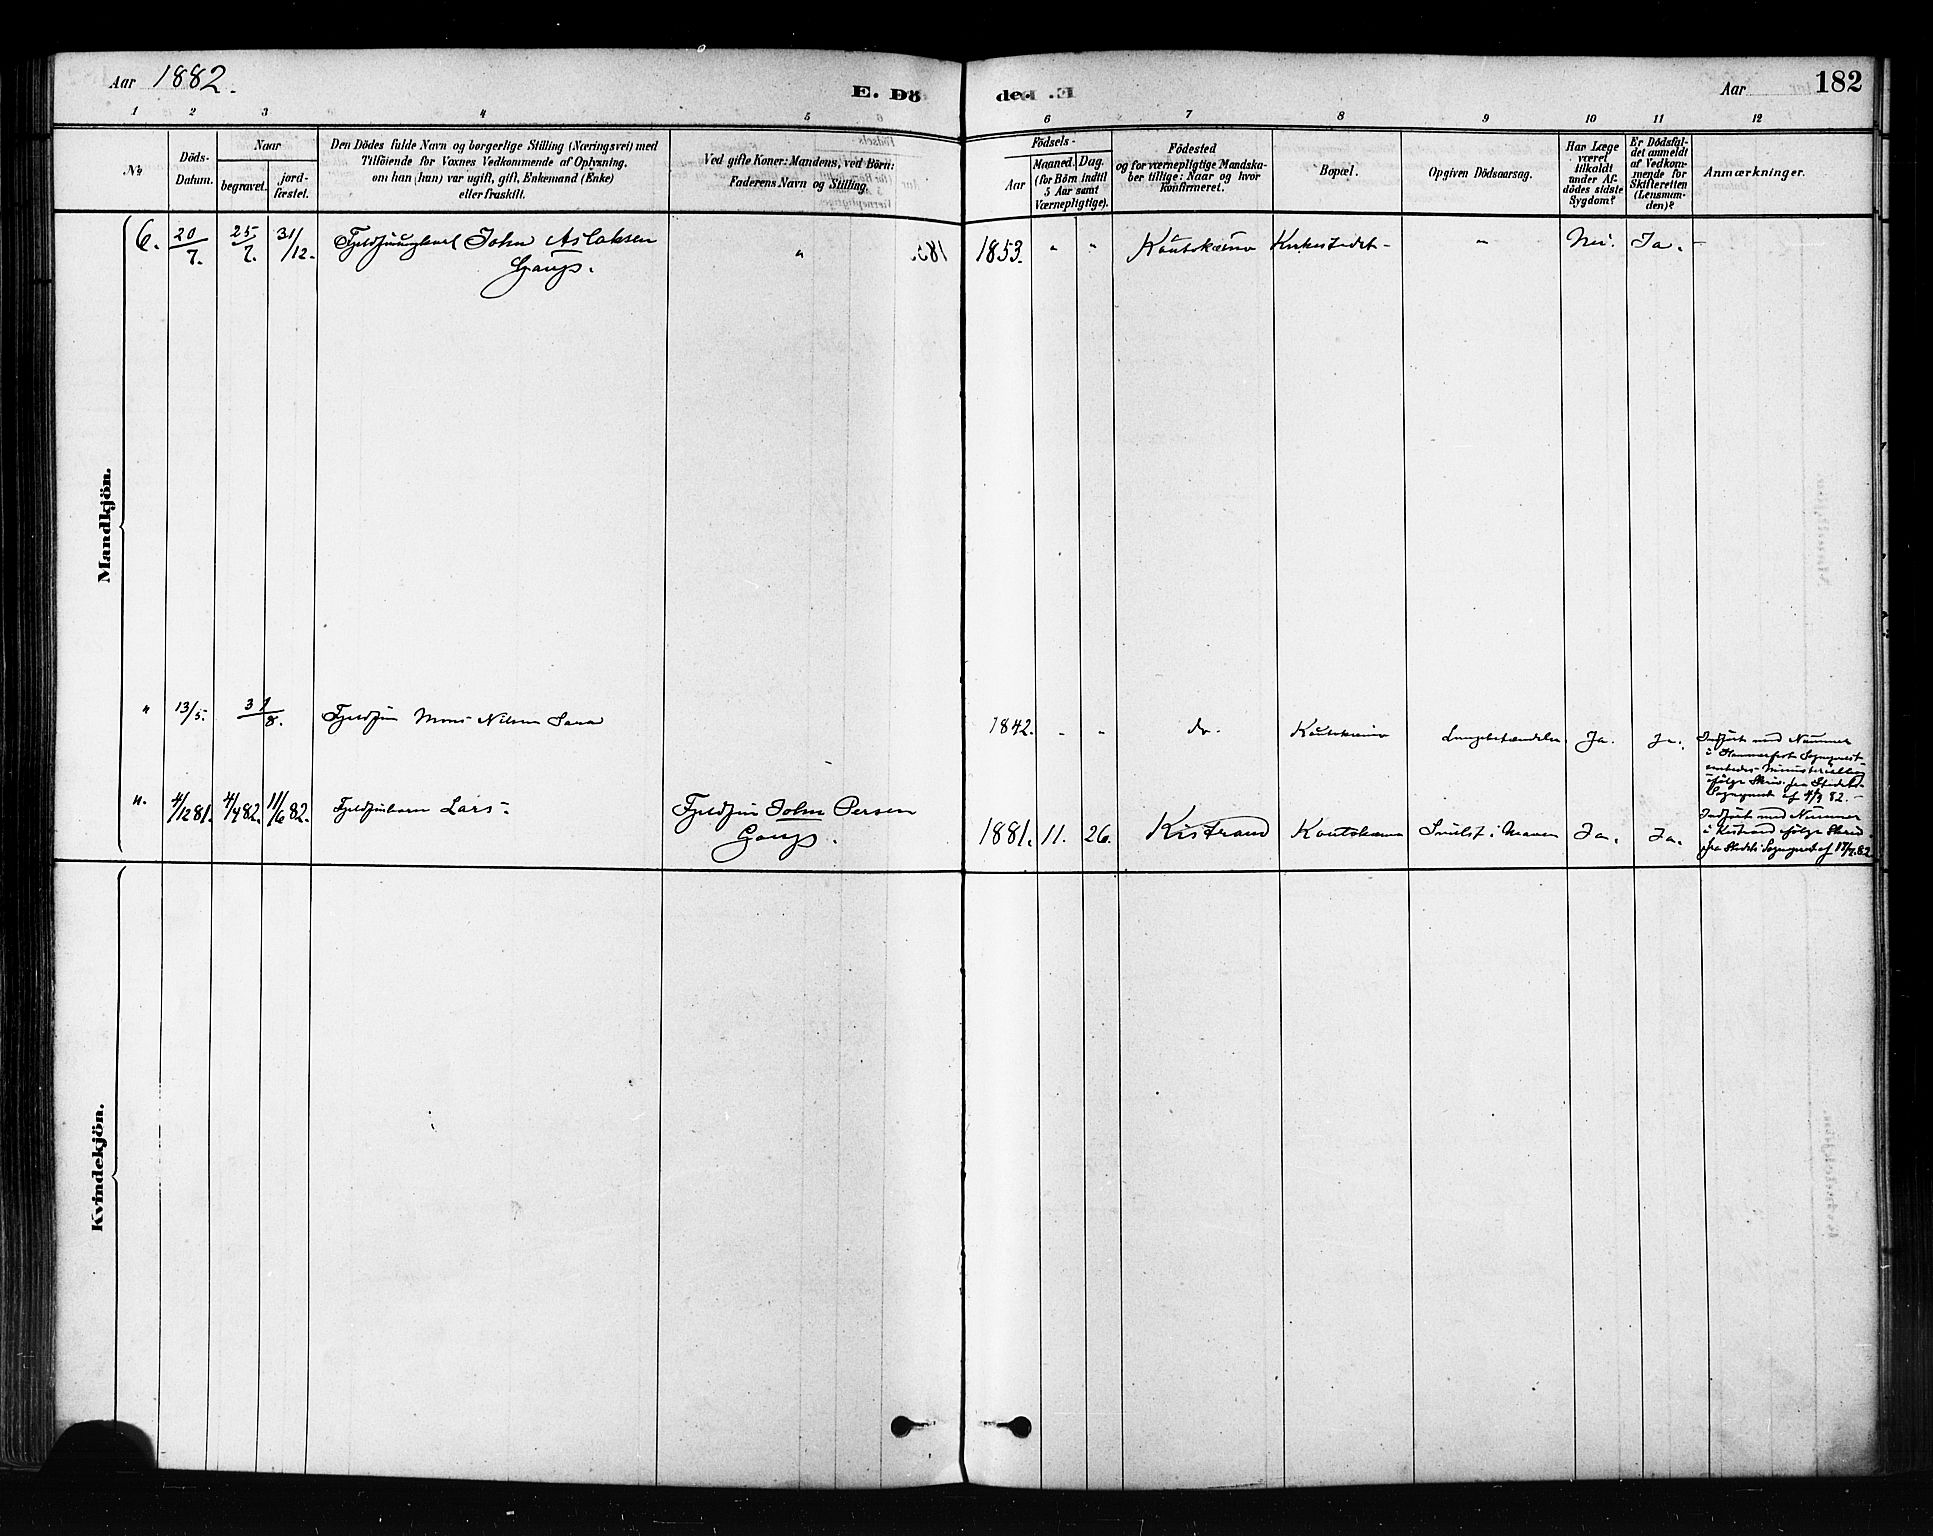 Aar 1882.
E. Dö
de.
Aar
182
1 2 3 4 5 6 7 8 9 10 11 12
No
Döds-
Datum.
Naar
begravet.
jord-
fæstet.
Den Dödes fulde Navn og borgerlige Stilling (Næringsvei) med
Tilföiende for Voxnes Vedkommende af Oplysning.
om han (hun) var ugift, gift, Enkemand (Enke)
eller fraskilt.
Ved gifte Koner: Mandens, ved Börn:
Faderens Navn og Stilling.
Födsels-
Aar
Maaned. Dag.
(for Börn indtil
5 Aar samt
Værnepligtige).
Födested
og for værnepligtige Mandska-
ber tillige: Naar og hvor
Konfirmeret.
Bopæl.
Opgiven Dödsaarsag.
Har Læge
været
tilkaldt
under Af-
dödes sidste
Sygdom?
Er Dödsfal-
det anmeldt
af Vedkom-
mende for
Skifteretten
(Lensman-
den)?
Anmærkninger.
Mandkjön.
6. 20/7. 25/7. 31/12. John Aslaksen " 1853. " " Koutokeino Kirkestedet - " Nei. Ja. -
Gaup.
" 13/5. 31/8. Mons Nilsen Sara 1842. " " do. Koutokeino Lungebetændelse Ja. Ja. Indført med Nummer
i Hammerfest
Skriv. fra Stedets
af 4/9 82. -
". 4/12 81. 4/4 82. 11/6 82. Lars - John Persen 1881. 11. 26. Kistrand Koutokeino i Maven Ja. Ja. Indført med Nummer
Gaup. i Kistrand ifølge Skriv.
fra Stedets Sogneprest af 17/7.82
Kvindekjön.